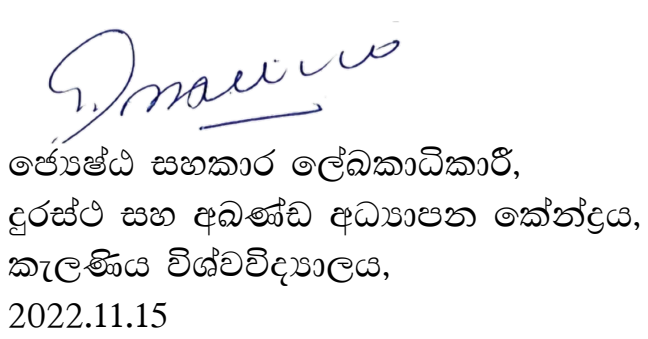 ජ්‍යෙෂ්ඨ සහකාර ලේඛකාධිකාරී,
දුරස්ථ සහ අඛණ්ඩ අධ්‍යාපන කේන්ද්‍රය,
කැලණිය විශ්වවිද්‍යාලය,
2022.11.15